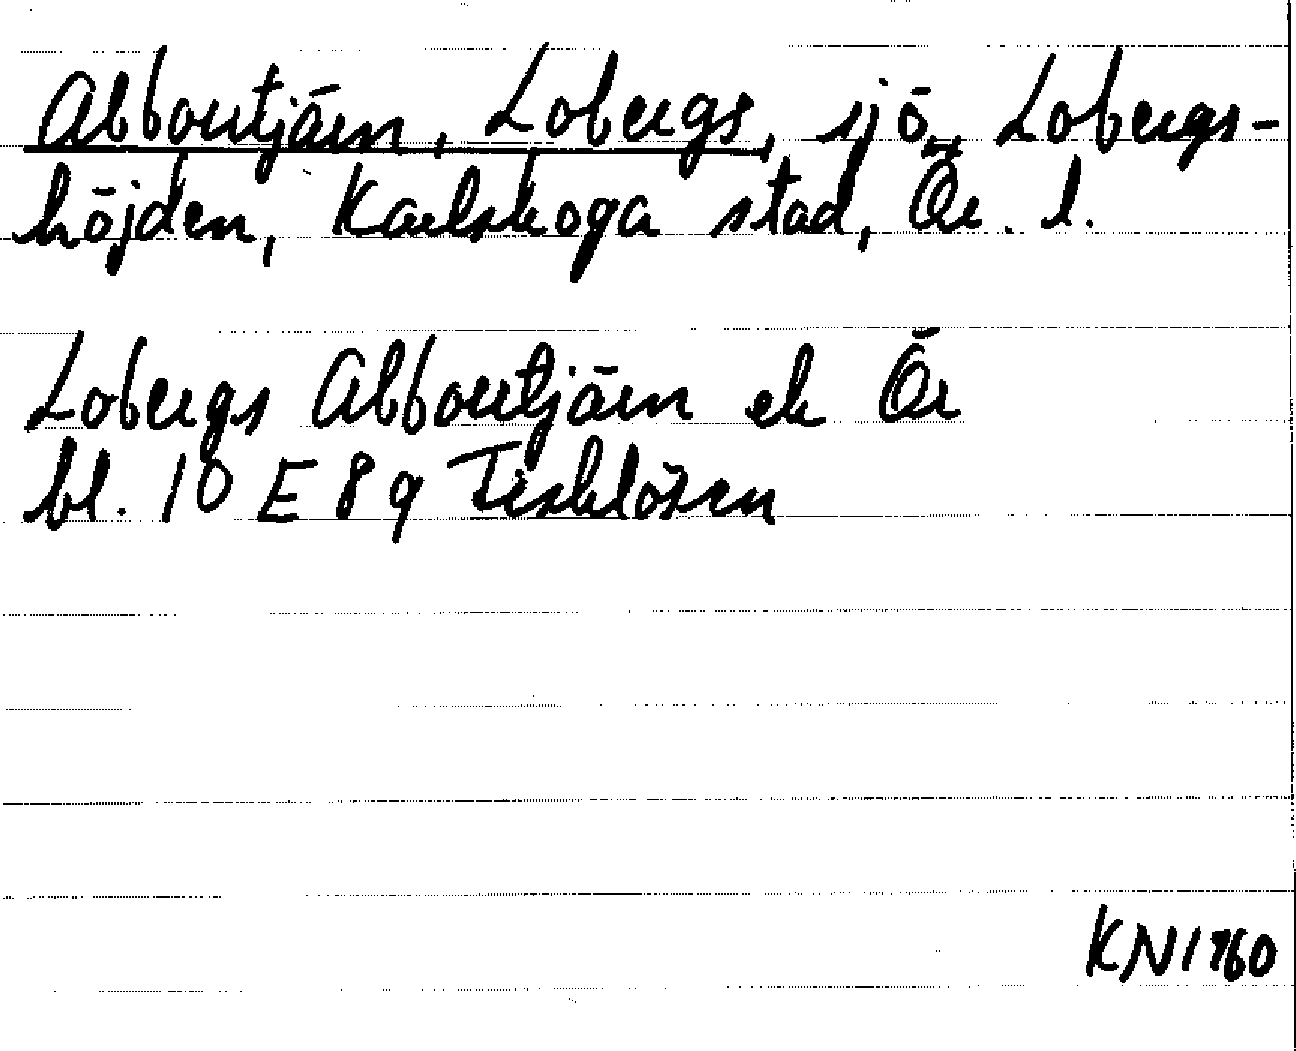 Abbortjärn, Lobergs, sjö, Lobergs-
höjden, Karlskoga stad, Ör. l.
Lobergs Abbortjärn ek Ör
bl. 10 E 8 g Fisklösen
KN 1960